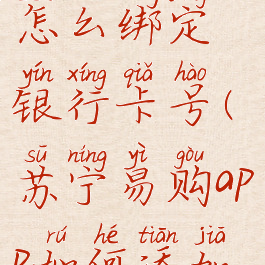 怎么绑定
yín xíng qiǎ hào
银行卡号(
sū níng yì gòu
苏宁易购ap
rú hé tiān jiā